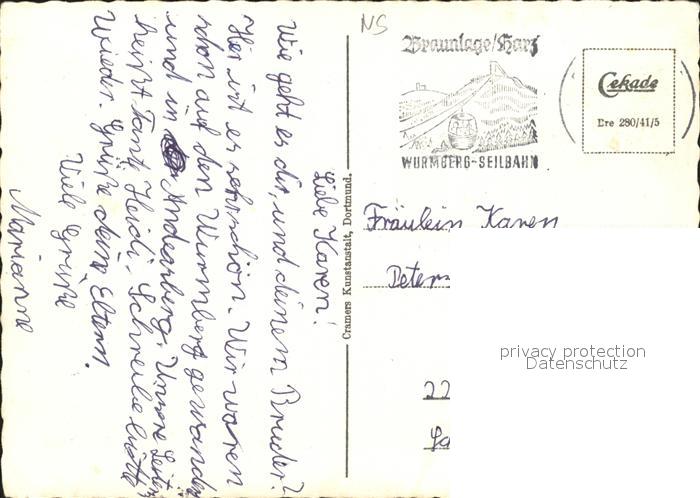 NS
Braunlage/Harz
WURMBERG-SEILBAHN
Cekade
Bre 280/41/5
Liebe Karen!
Wie geht es dir, und deinem Bruder?
Hier ist es sehr schön. Wir waren
schon auf den Wurmberg gewandert
und in Andearberg. Unsere Leiterin
heißt Tante Heidi. Schreibe bitte
wieder. Grüße deine Eltern.
Viele Grüße
Marianne
Cramers Kunstanstalt, Dortmund.
Fräulein Karen
Peters
22
privacy protection
Datenschutz